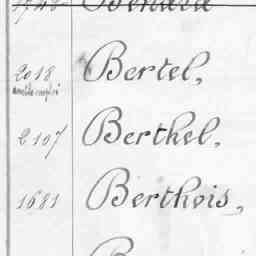 2018 Bertel,
2107 Berthel,
1681 Berthois,